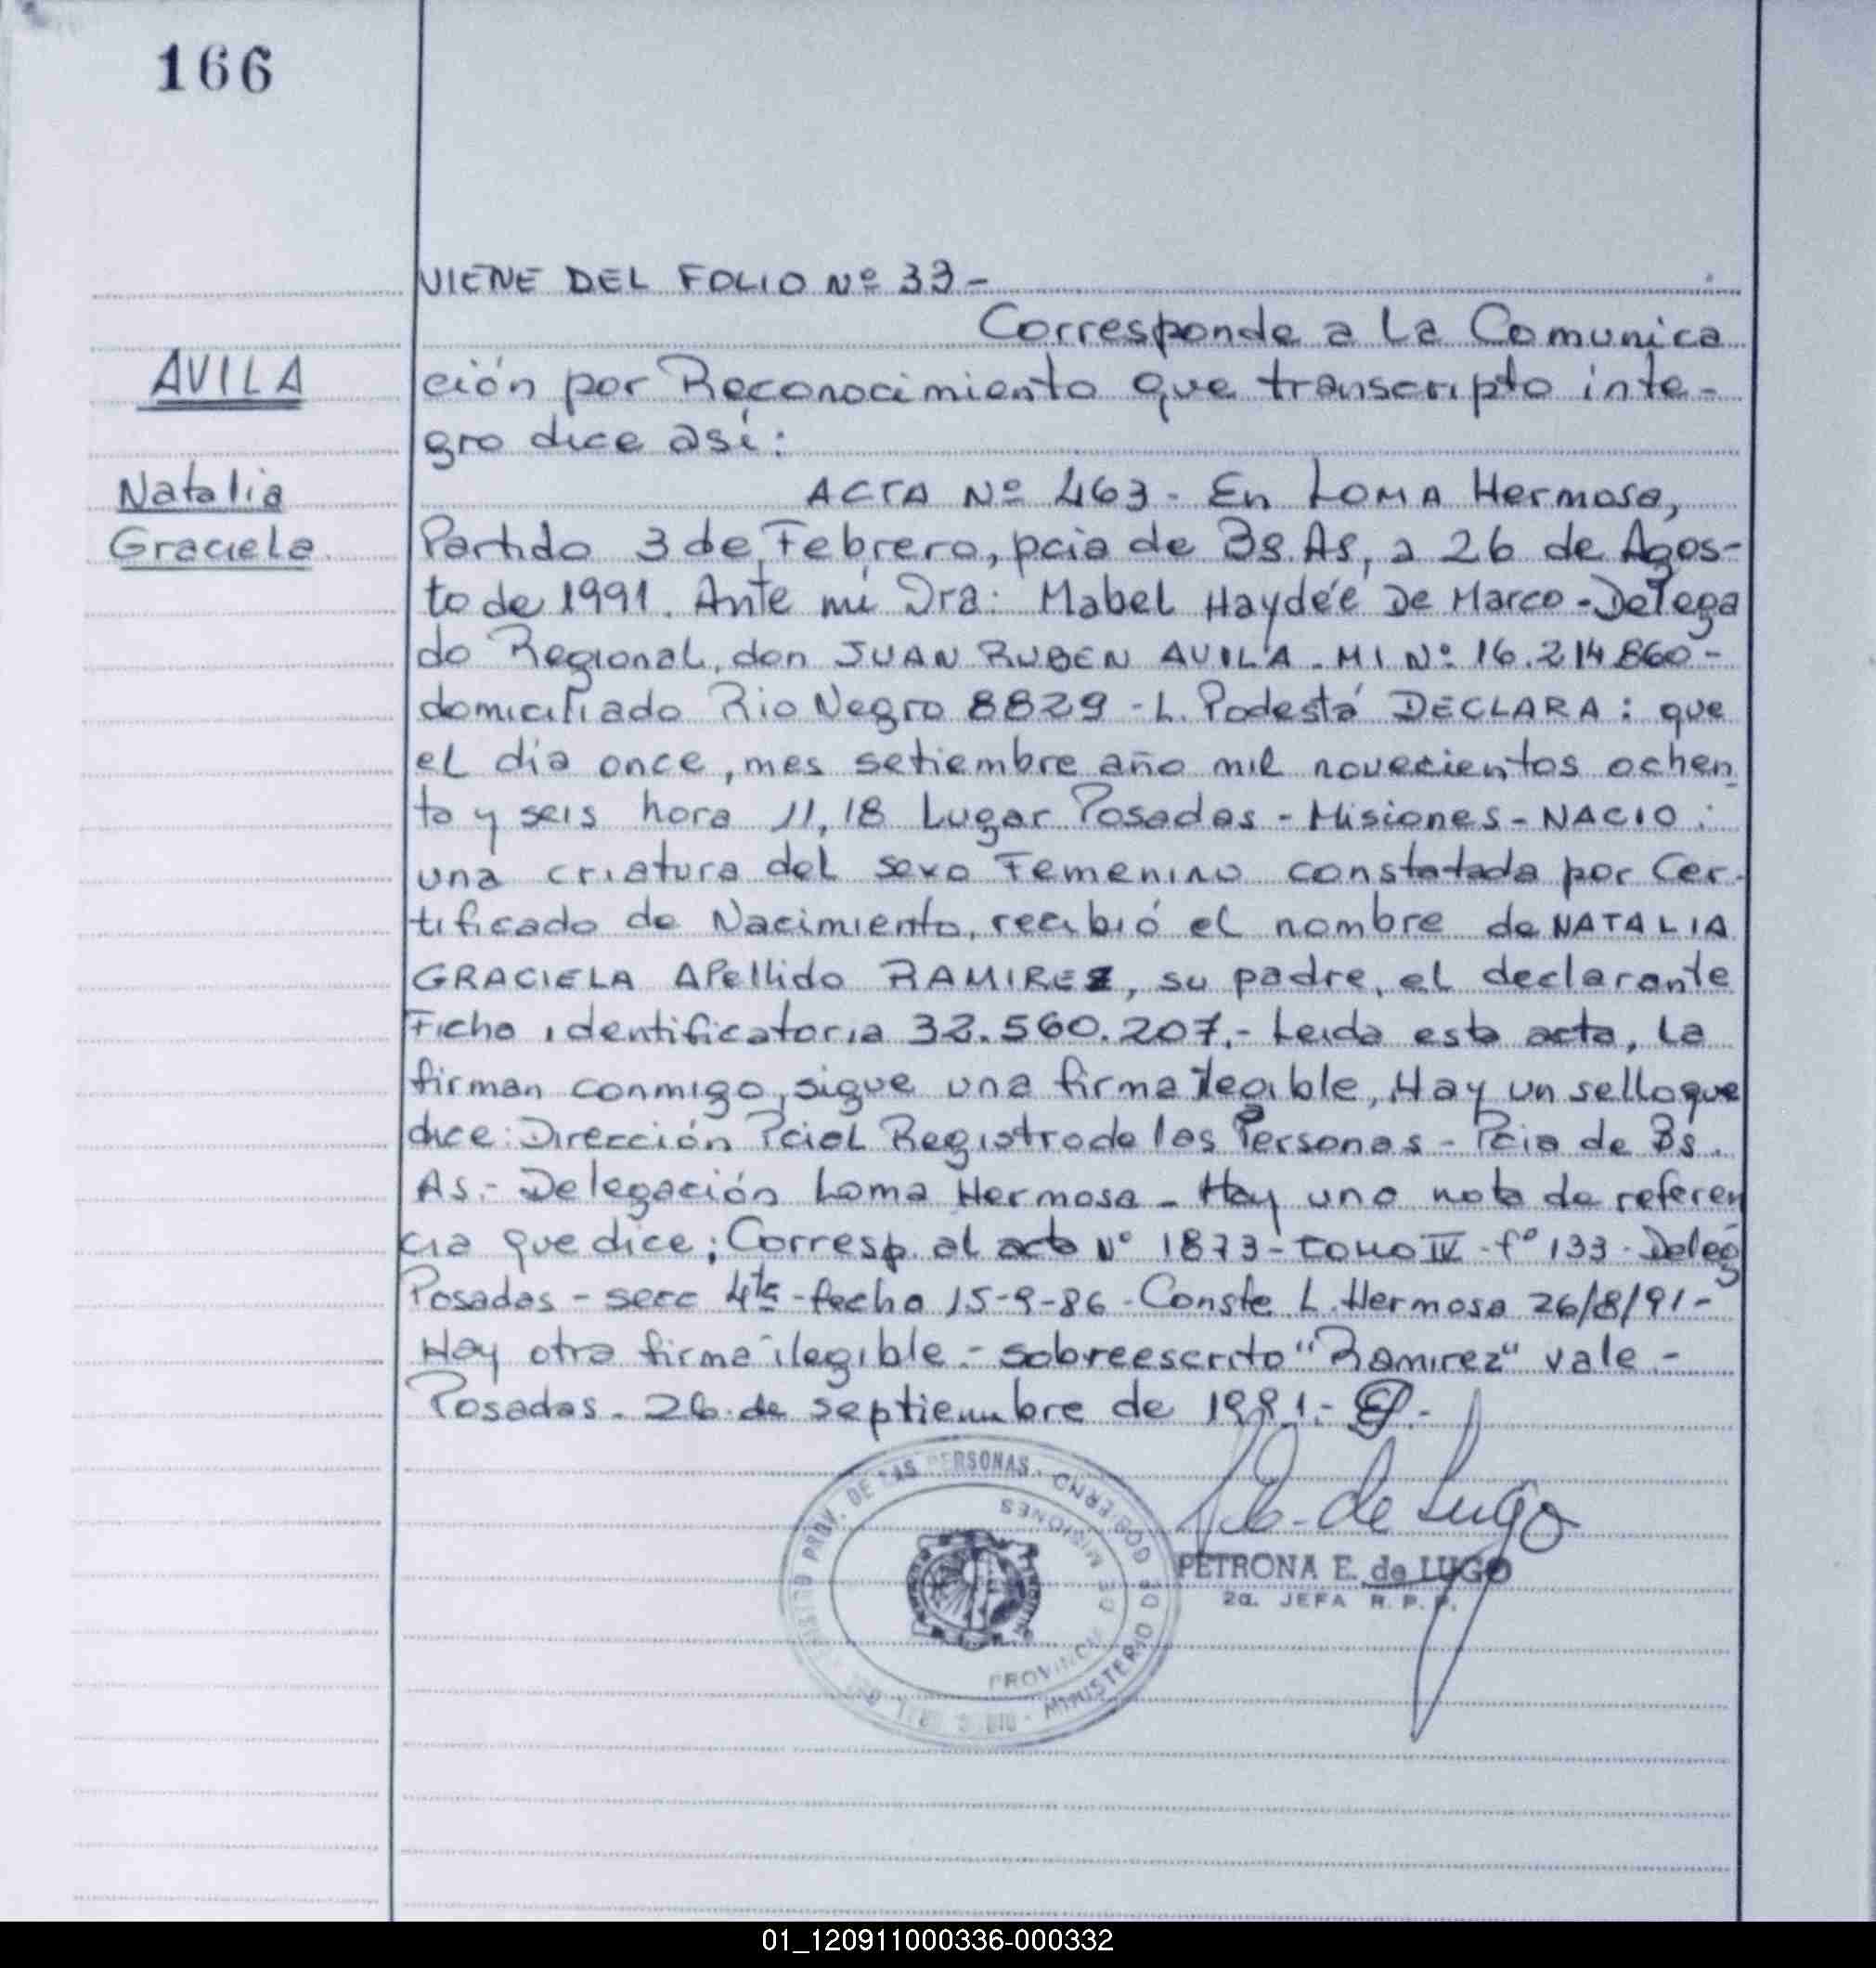 166
VIENE DEL FOLIO Nº 33-
Corresponde a la Comunica
AVILA
ción por Reconocimiento que transcripto inte-
gro dice así:
Natalia
ACTA Nº 463- En LOMA Hermosa,
Graciela
Partido 3 de Febrero, pcia de Bs. As, a 26 de Agos-
to de 1991. Ante mí Dra: Mabel Haydée De Marco - Delega
do Regional, don JUAN RUBEN AVILA. MI Nº 16.214.860-
domiciliado Rio Negro 8829 - L. Podestá DECLARA: que
el día once, mes setiembre año mil novecientos ochen
ta y seis hora 11,18 Lugar Posadas - Misiones - NACIO:
una criatura del sexo Femenino constatada por Cer-
tificado de Nacimiento, recibió el nombre de NATALIA
GRACIELA APellido RAMIREZ, su padre, el declarante
Ficha identificatoria 32.560.207.- Leida esta acta, la
firman conmigo, sigue una firma ilegible, Hay un sello que
dice: Dirección Pcial Registro de las Personas - Pcia de Bs.
As.- Delegación Loma Hermosa - Hay una nota de referen
cia que dice; Corresp. al acta Nº 1873 - tomo IV - fº 133 - Deleg
Posadas - secc 4ta - fecha 15-9-86 - Conste L. Hermosa 26/8/91-
Hay otra firma ilegible.- sobreescrito "Ramirez" vale.-
Posadas. 26 de septiembre de 1991.-
PROV. DE LAS PERSONAS. MINISTERIO DE GOBIERNO
PROVINCIA DE MISIONES
de Lugo
PETRONA E. de LUGO
2a. JEFA R. P. P.
01_120911000336-000332